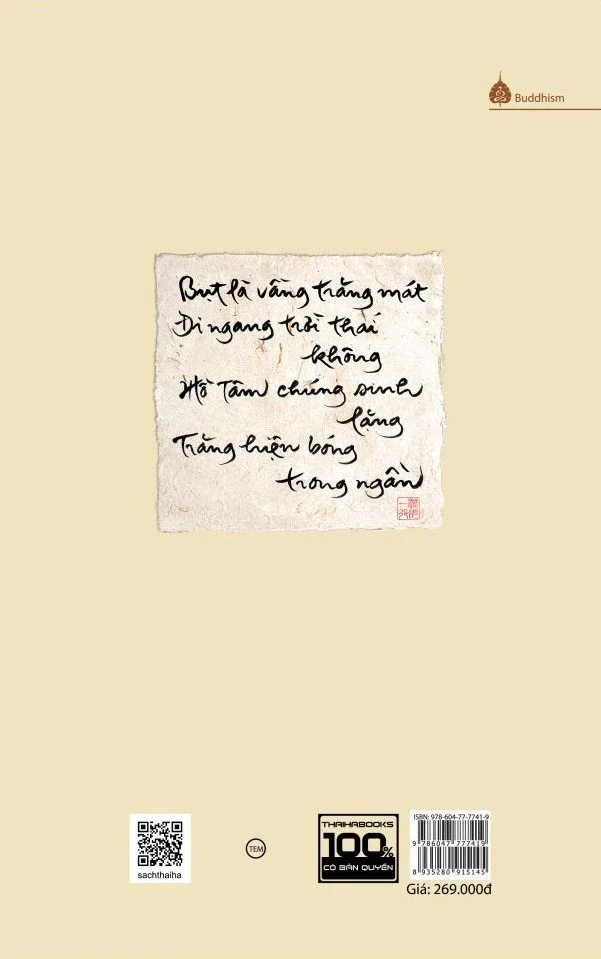 Buddhism
Bụt là vầng trăng mát
Đi ngang trời thái
không
Hồ Tâm chúng sinh
lặng
Trăng hiện bóng
trong ngần
sachthaiha
TEM
THAIHABOOKS
100%
CÓ BẢN QUYỀN
ISBN: 978-604-77-7741-9
9 786047 777419
8 935280 915145
Giá: 269.000đ